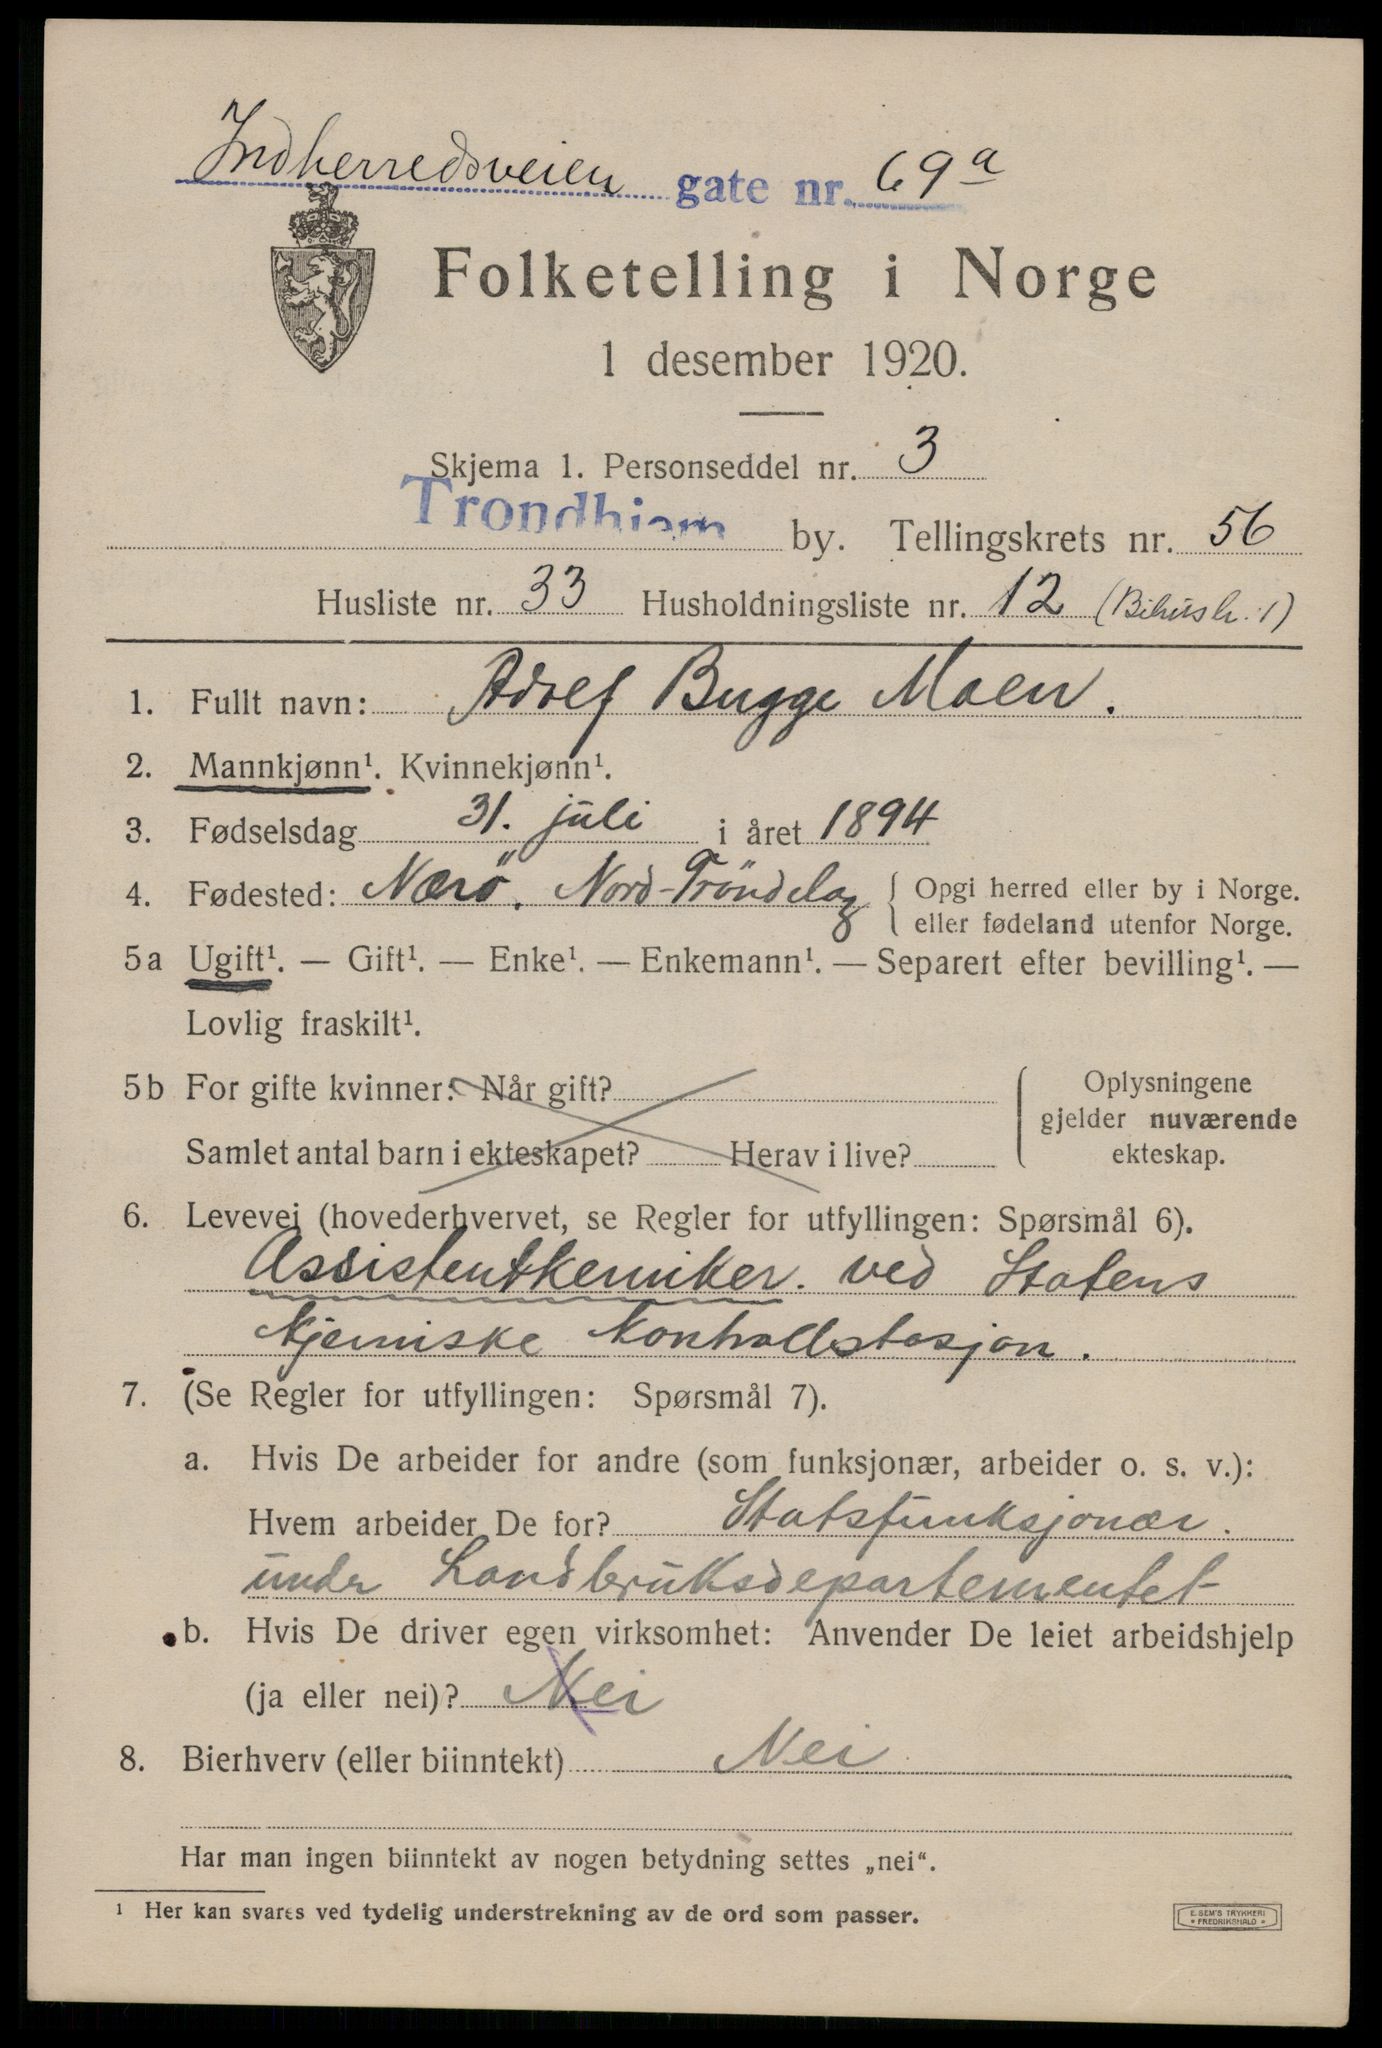 Indherredsveien gate nr. 69a
Folketelling i Norge
1 desember 1920.
Skjema 1. Personseddel nr. 3
Trondhjem by. Tellingskrets nr. 56
Husliste nr. 33 Husholdningsliste nr. 12 (Bihush. 1)
1. Fullt navn: Adolf Bugge Moen.
2. Mannkjønn¹. Kvinnekjønn¹.
3. Fødselsdag 31. juli i året 1894
4. Fødested: Nærö. Nord-Tröndelag { Opgi herred eller by i Norge.
eller fødeland utenfor Norge.
5a Ugift¹. — Gift¹. — Enke¹. — Enkemann¹. — Separert efter bevilling¹. —
Lovlig fraskilt¹.
5b For gifte kvinner: Når gift?
Samlet antal barn i ekteskapet? Herav i live?
Oplysningene
gjelder nuværende
ekteskap.
6. Levevei (hovederhvervet, se Regler for utfyllingen: Spørsmål 6).
Assistentkemiker. ved Statens
Kjemiske Kontrollstasjon.
7. (Se Regler for utfyllingen: Spørsmål 7).
a. Hvis De arbeider for andre (som funksjonær, arbeider o. s. v.):
Hvem arbeider De for? Statsfunksjonær.
under Landbruksdepartementet
b. Hvis De driver egen virksomhet: Anvender De leiet arbeidshjelp
(ja eller nei)? Nei
8. Bierhverv (eller biinntekt) Nei
Har man ingen biinntekt av nogen betydning settes „nei“.
¹ Her kan svares ved tydelig understrekning av de ord som passer.
E. SEM'S TRYKKERI
• FREDRIKSHALD •